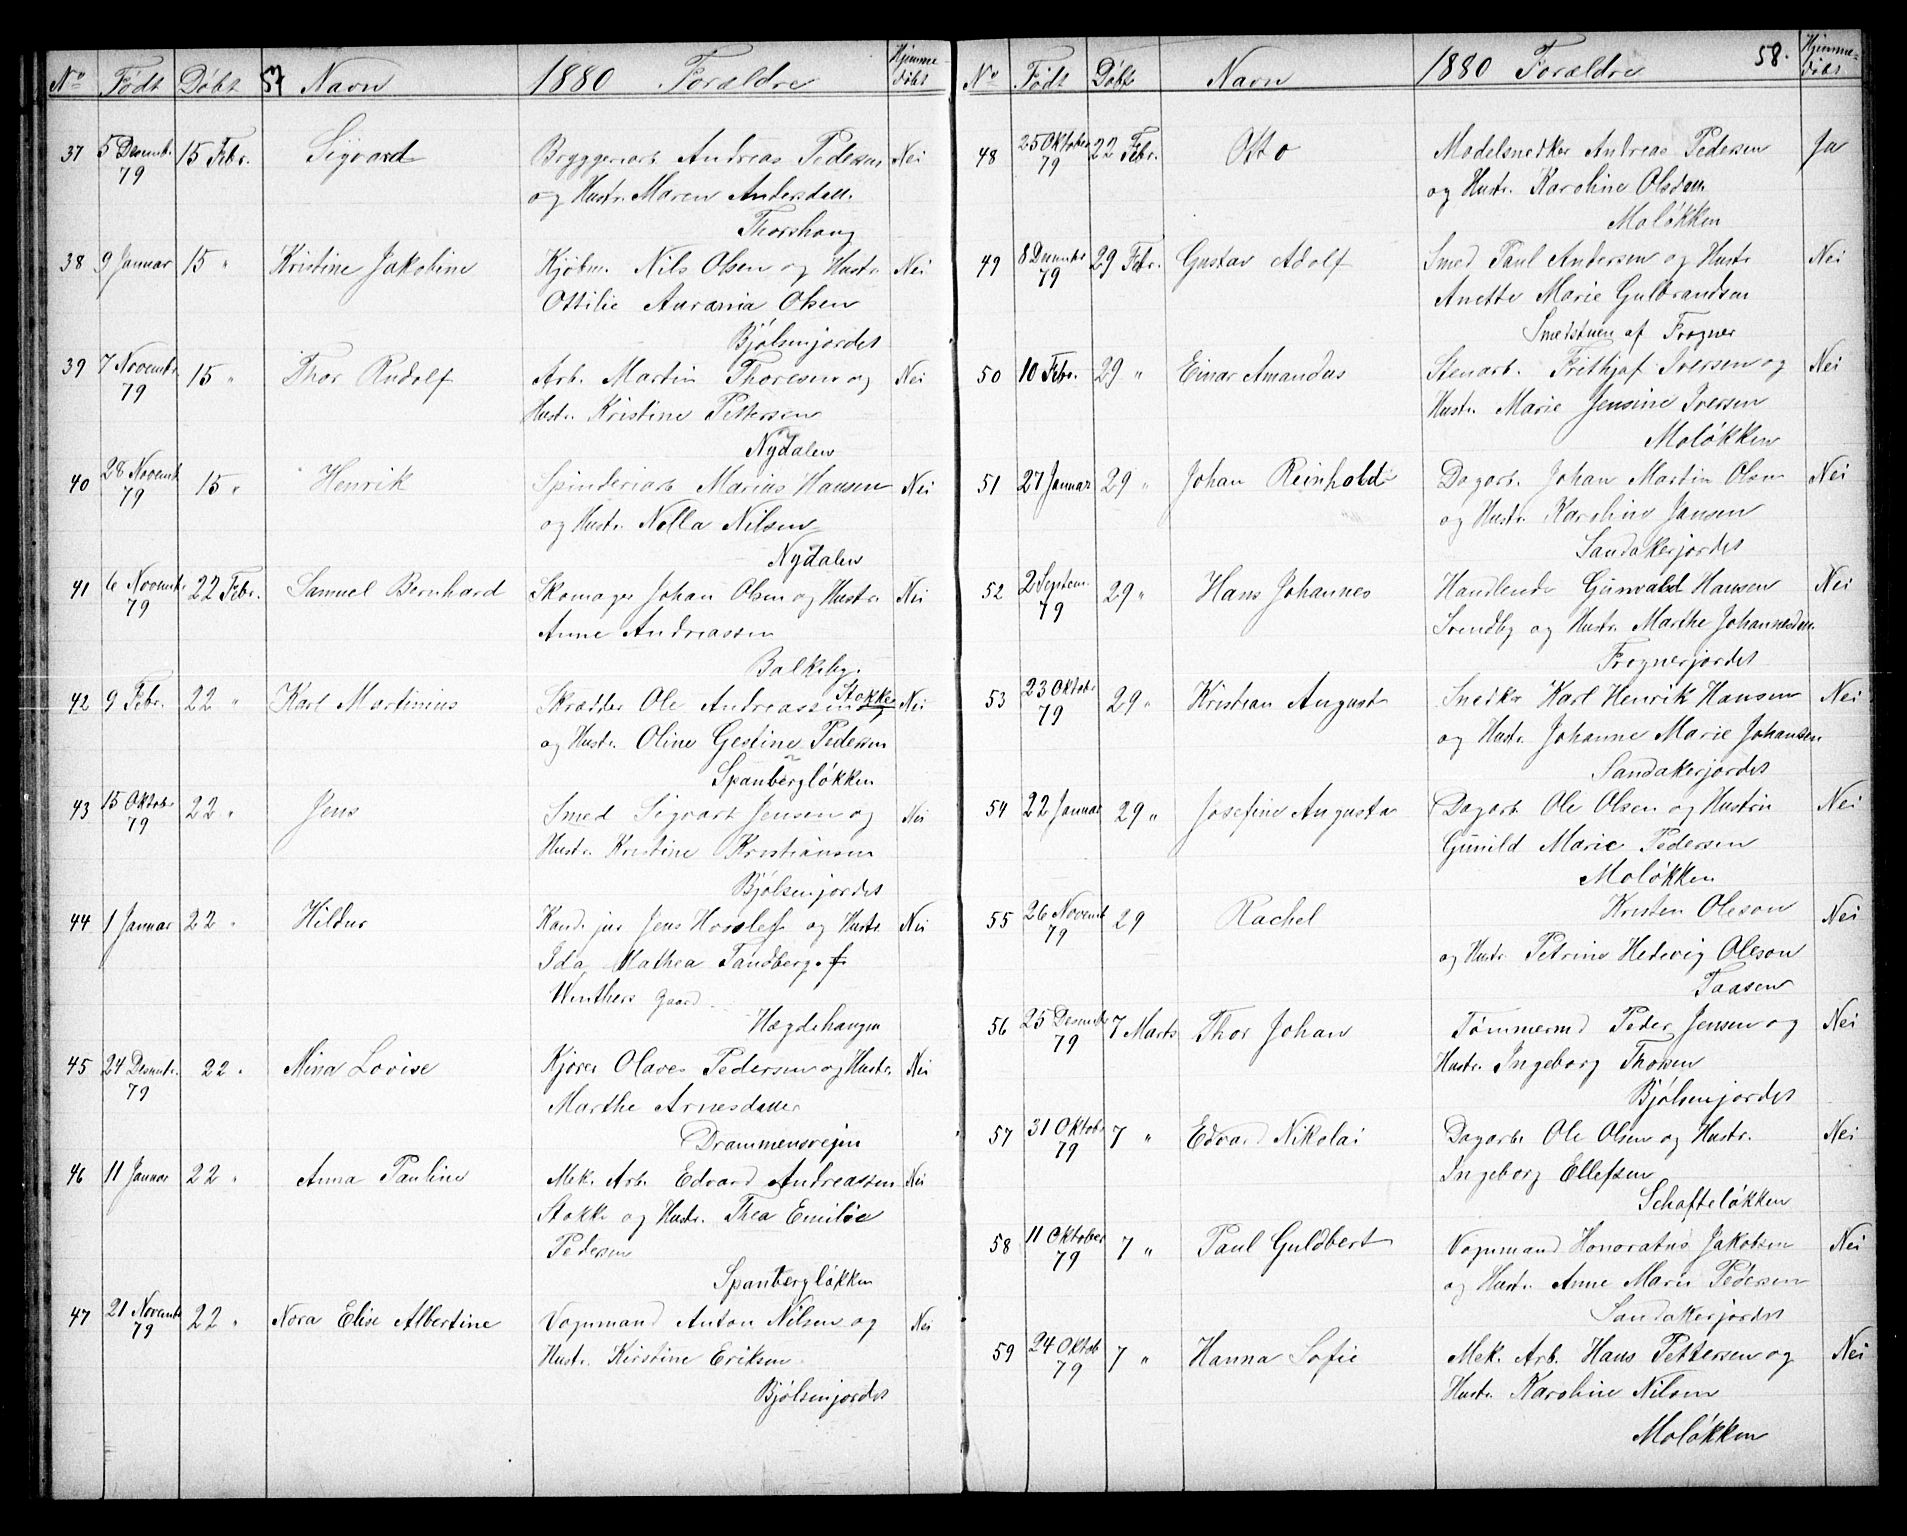 No Født Døbt 57 Navn 1880 Forældre Hjemme-døbt
37 5 Desemb. 79 15 Febr. Sigvard Bryggeriarb. Andreas Pedersen Nei
og Hustr. Maren Andersdatt.
Thorshaug
38 9 Januar 15 " Kristine Jakobine Kjøbm. Nils Olsen og Hustr. Nei
Ottilie Aurania Olsen
Bjølsenjordet
39 7 Novembr. 79 15 " Thor Rudolf Arb. Martin Thoresen og Nei
Hustr. Kristine Pettersen
Nydalen
40 28 Novemb. 79 15 " Henrik Spinderiarb. Marius Hansen Nei
og Hustr. Nella Nilsen
Nydalen
41 6 Novembr. 79 22 Febr. Samuel Bernhard Skomager Johan Olsen og Hustr. Nei
Anne Andreassen
Balkeby.
42 9 Febr. 22 " Karl Martinius Skrædder Ole Andreassen Stokke Nei
og Hustr. Oline Gestine Pedersen
Spanbergløkken
43 15 Oktobr. 79 22 " Jens Smed Sigvart Jensen og Nei
Hustr. Kristine Kristiansen
Bjølsenjordet
44 1 Januar 22 " Hildur Kand. jur Jens og Hustr. Nei
Ida Mathea Tandberg. f
Winthers gaard
Hægdehaugen
45 24 Desembr. 79 22 " Mina Lovise Kjører Olaves Pedersen og Hustr. Nei
Marthe Arnesdatter
Drammensvejen
46 11 Januar 22 " Anna Pauline Mek. Arb. Edvard Andreassen Nei
Stokke og Hustr. Thea Emilie
Pedersen
Spanbergløkken
47 21 Novemb. 79 22 " Nora Elise Albertine Vognmand Anton Nilsen og Nei
Hustr. Kirstine Eriksen
Bjølsenjordet
No Født Døbt Navn 1880 Forældre 58. Hjemme-døbt
48 25 Oktober 79 22 Febr. Otto Modelsnedker Andreas Pedersen Ja
og Hustr. Karoline Olsdatt
Moløkken
49 8 Desember 79 29 Febr. Gustav Adolf Smed Paul Andersen og Hustr. Nei
Anette Marie Gulbrandsen
Smedstuen af Frogner
50 10 Febr. 29 " Einar Amandus Stenarb. Frithjof Iversen og Nei
Hustr. Marie Jensine Iversen
Moløkken
51 27 Januar 29 " Johan Reinhold Dagarb. Johan Martin Olsen Nei
og Hustr. Karoline Jansen
Sandakerjordet
52 2 Septem. 79 29 " Hans Johannes Handlende Gunvald Hansen Nei
Svendby og Hustr. Marthe Johannesdatt.
Frognerjordet
53 23 Oktobr 79 29 " Kristian August Snedker Karl Henrik Hansen Nei
og Hustr. Johanne Marie Johansen
Sandakerjordet
54 22 Januar 29 " Josefine Augusta Dagarb. Ole Olsen og Hustru Nei
Gunild Marie Pedersen
Moløkken
55 26 Novemb. 79 29 Rachel Kristen Oleson Nei
og Hustr. Petrine Hedevig Oleson
Taasen
56 25 Desember 79 7 Marts Thor Johan Tømmermd Peder Jensen og Nei
Hustr. Ingeborg Thorsen
Bjølsenjordet
57 31 Oktobr 79 7 " Edvard Nikolai Dagarb. Ole Olsen og Hustr. Nei
Ingeborg Ellefsen
Schafteløkken
58 11 Oktober 79 7 " Paul Guldbert Vognmand Honoratus Jakobsen Nei
og Hustr. Anne Marie Pedersen
Sandakerjordet
59 24 Oktob 79 7 " Hanna Sofie Mek. Arb. Hans Pettersen og Nei
Hustr. Karoline Nilsen
Moløkken